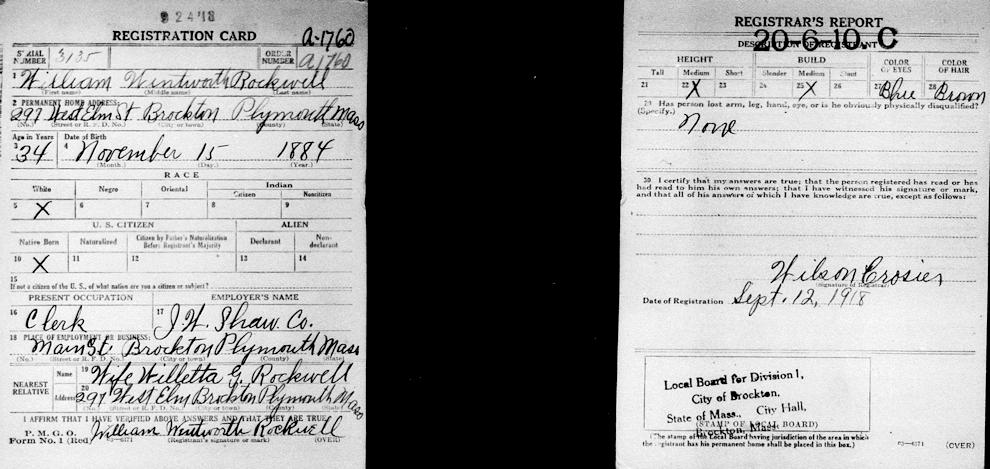 9 24 18
REGISTRATION CARD A-1760
SERIAL NUMBER 3135 ORDER NUMBER A1760
1 William Wentworth Rockwell
(First name) (Middle name) (Last name)
2 PERMANENT HOME ADDRESS:
297 West Elm St Brockton Plymouth Mass
(No.) (Street or R. F. D. No.) (City or town) (County) (State)
Age in Years Date of Birth
3 34 4 November 15 1884
(Month.) (Day.) (Year.)
RACE
White Negro Oriental Indian
Citizen Noncitizen
5 X 6 7 8 9
U. S. CITIZEN ALIEN
Native Born Naturalized Citizen by Father's Naturalization Before Registrant's Majority Declarant Non-declarant
10 X 11 12 13 14
15
If not a citizen of the U. S., of what nation are you a citizen or subject?
PRESENT OCCUPATION EMPLOYER'S NAME
16 Clerk 17 J. W. Shaw. Co.
18 PLACE OF EMPLOYMENT OR BUSINESS:
Main St. Brockton Plymouth Mass
(No.) (Street or R. F. D. No.) (City or town) (County) (State)
NEAREST RELATIVE Name 19 Wife Willetta G. Rockwell
Address 20 297 West Elm Brockton Plymouth Mass
(No.) (Street or R. F. D. No.) (City or town) (County) (State)
I AFFIRM THAT I HAVE VERIFIED ABOVE ANSWERS AND THAT THEY ARE TRUE
P. M. G. O.
Form No. 1 (Red) William Wentworth Rockwell
03—6171 (Registrant's signature or mark) (OVER)
REGISTRAR'S REPORT
20-6-10 C
DESCRIPTION OF REGISTRANT
HEIGHT BUILD COLOR OF EYES COLOR OF HAIR
Tall Medium Short Slender Medium Stout
21 22 X 23 24 25 X 26 27 Blue 28 Brown
29 Has person lost arm, leg, hand, eye, or is he obviously physically disqualified?
(Specify.) None
30 I certify that my answers are true; that the person registered has read or has
had read to him his own answers; that I have witnessed his signature or mark,
and that all of his answers of which I have knowledge are true, except as follows:
Wilson Crosier
(Signature of Registrar)
Date of Registration Sept. 12, 1918
Local Board for Division 1,
City of Brockton,
State of Mass., City Hall,
Brockton, Mass.
(STAMP OF LOCAL BOARD)
(The stamp of the Local Board having jurisdiction of the area in which
the registrant has his permanent home shall be placed in this box.)
03—6171 (OVER)